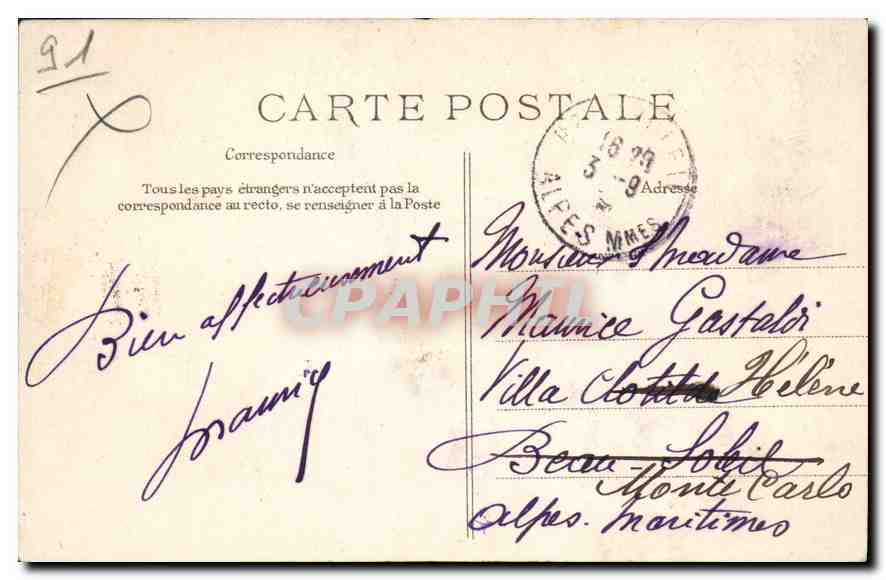 91
CARTE POSTALE
Correspondance
Tous les pays étrangers n'acceptent pas la
correspondance au recto, se renseigner à la Poste
Adresse
16 30
3 - 9
ALPES MMES
Bien affectueusement
Maurice
CPAPHIL
Monsieur & Madame
Maurice Gastaldi
Villa Clotilde Hélène
Beau-Soleil
Monte Carlo
Alpes-Maritimes